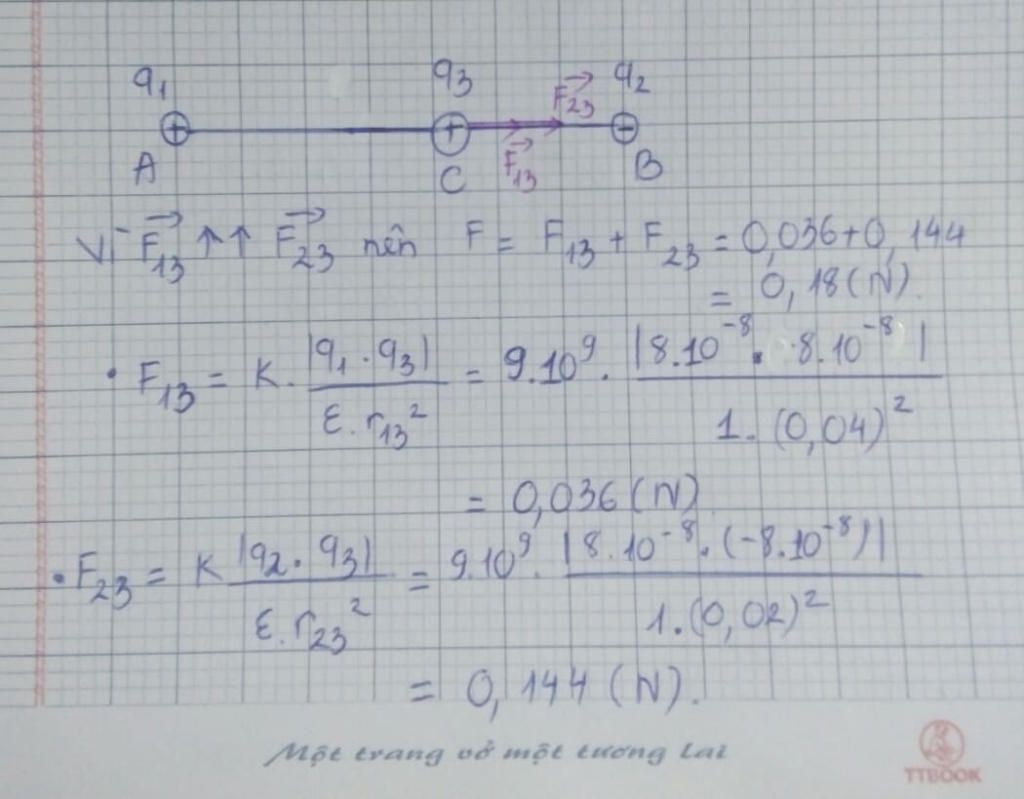 q₁ q₃ F₂₃→ q₂
A C F₁₃→ B
Vì F₁₃→ ↑↑ F₂₃→ nên F = F₁₃ + F₂₃ = 0,036+0,144
= 0,18 (N).
• F₁₃ = K. |q₁.q₃| / ε.r₁₃² = 9.10⁹. |8.10⁻⁸. 8.10⁻⁸| / 1.(0,04)²
= 0,036 (N)
• F₂₃ = K |q₂.q₃| / ε.r₂₃² = 9.10⁹. |8.10⁻⁸.(-8.10⁻⁸)| / 1.(0,02)²
= 0,144 (N).
Một trang vở một tương lai
TTBOOK